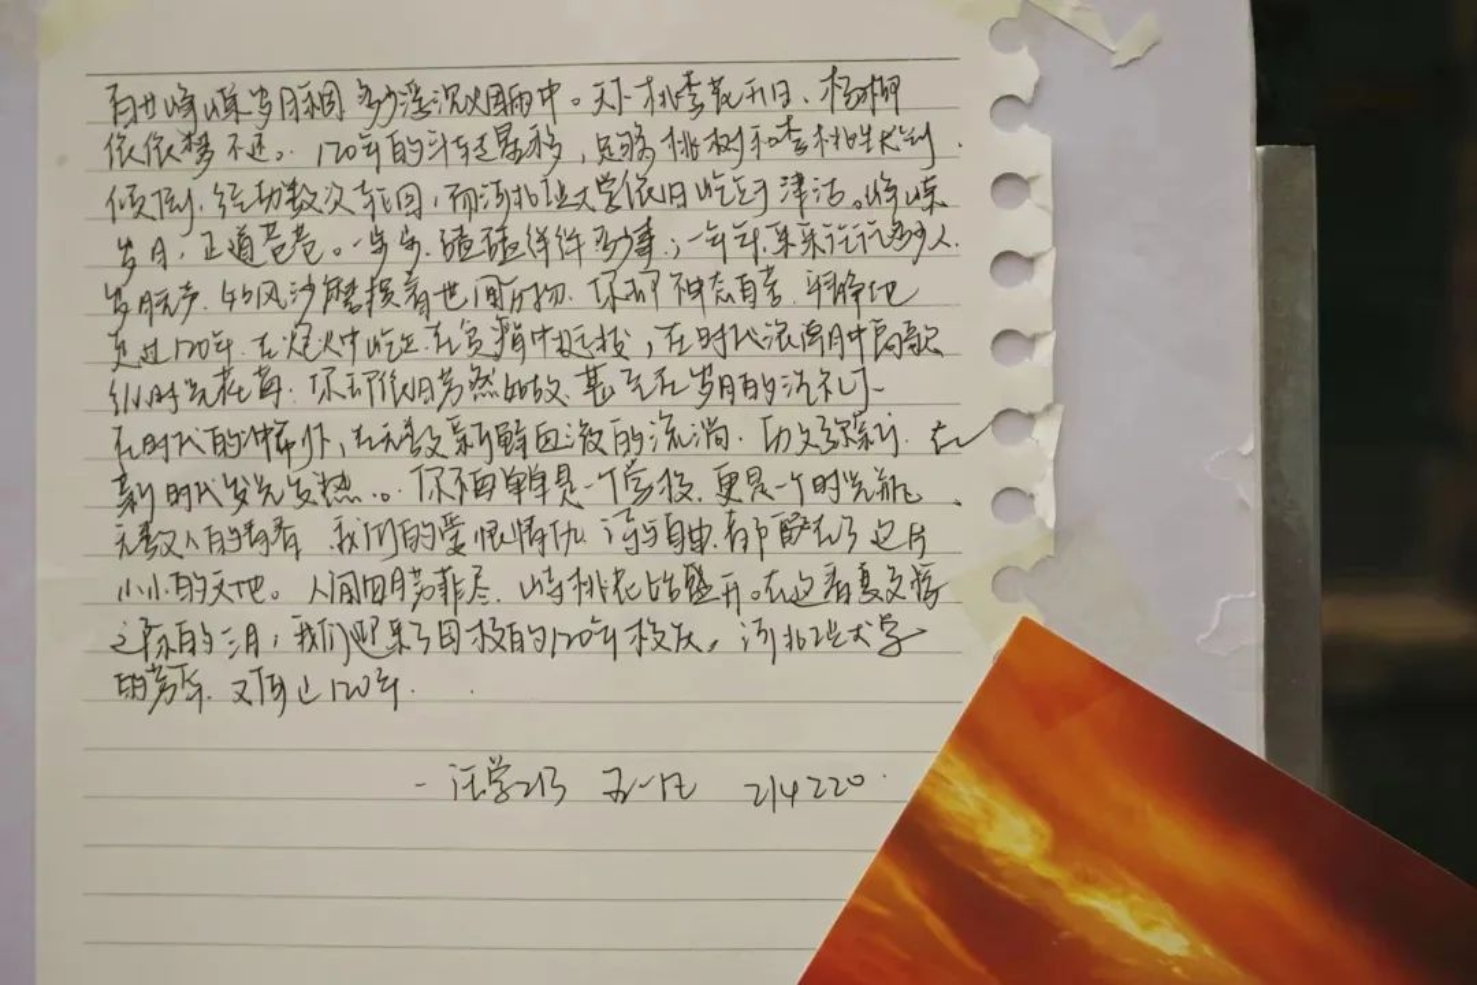 百世峥嵘岁月稠 多少浮沉烟雨中。天下桃李花开日、杨柳
依依梦不还。120年的斗转星移，足够桃树和李树生长到
倾倒、经历数次轮回，而河北工业大学依旧屹立于津沽。峥嵘
岁月，正道苍苍。一步步、磕磕绊绊多少事；一年年、来来往往多少人。
岁月无声、的风沙磨损着世间万物、你却神态自若、平静地
走过120年、在炮火中屹立、在负箱中挺拔，在时代浪潮中高歌
纵时光荏苒、你却依旧芳然如故、甚至在岁月的洗礼下、
在时代的冲荡下，在无数新鲜血液的流淌、历久弥新、在
新时代发光发热。你不单单是一个学校、更是一个时光瓶、
无数人的青春 我们的爱恨情仇 诗与自由、都留在了这片
小小的天地。人间四月芳菲尽、山寺桃花始盛开。在这春夏交接
之际的三月，我们迎来了母校的120年校庆，河北工业大学
的芳华、又何止120年.
- 法学213 214220